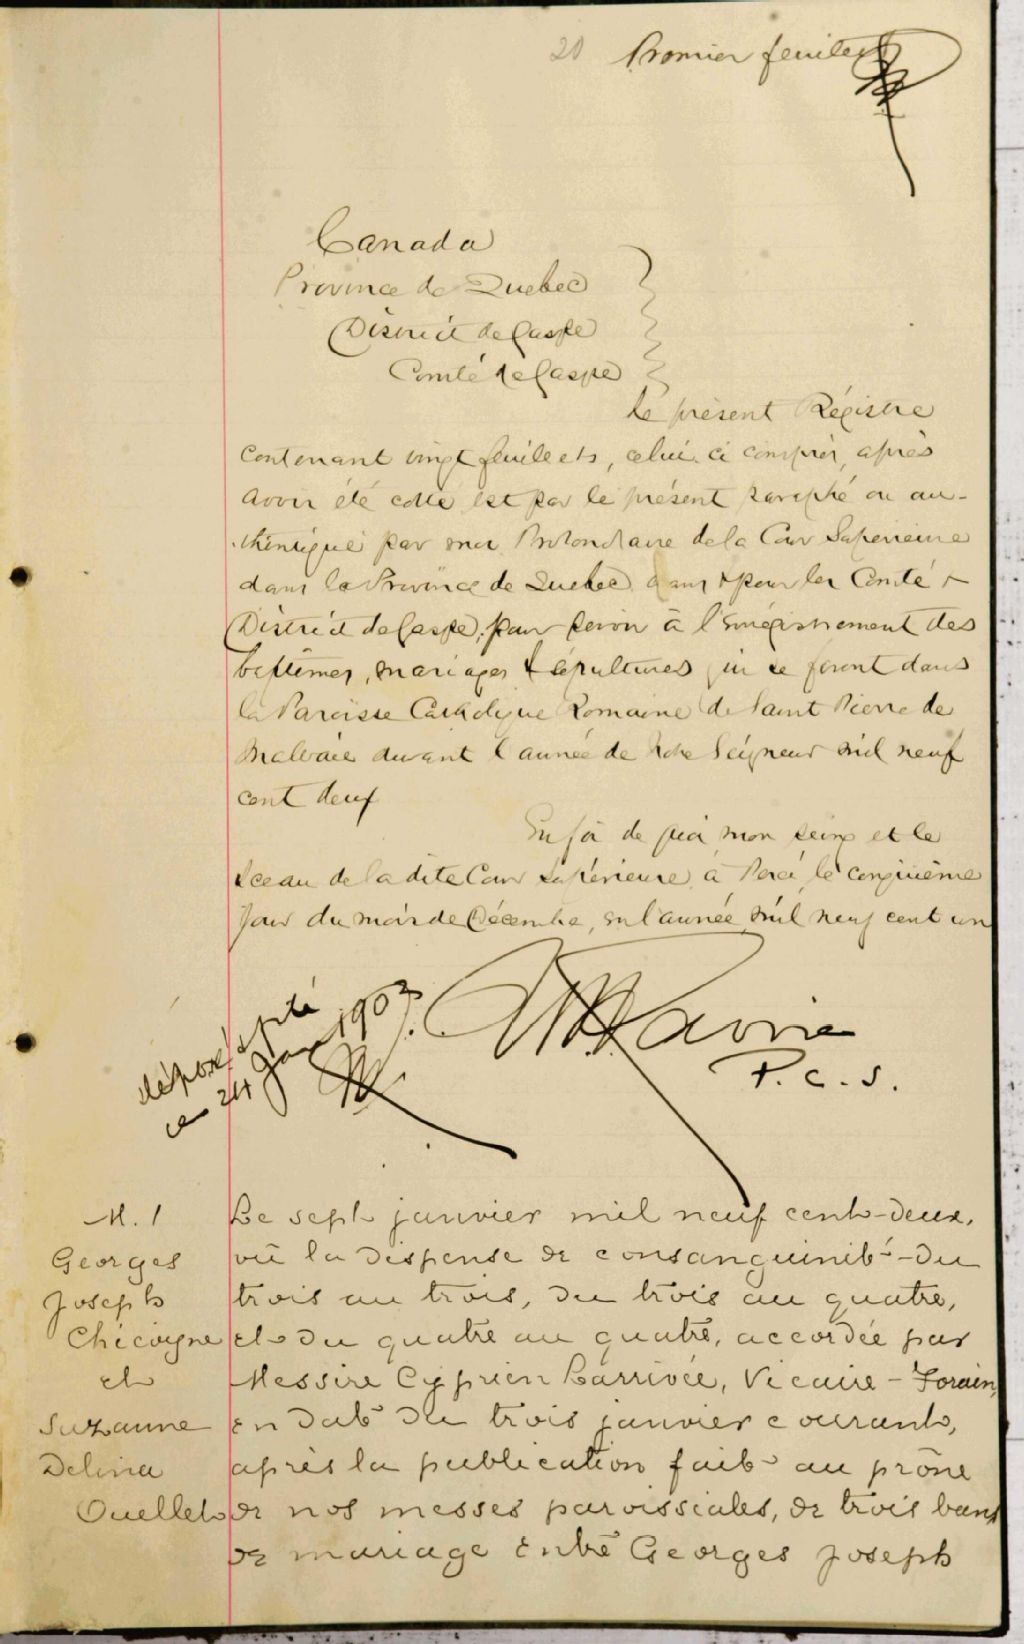 20 Premier feuillet
Canada
Province de Quebec
District de Gaspé
Comté de Gaspé
Le présent Régistre
contenant vingt feuillets, celui ci compris, après
avoir été coté est par le présent paraphé ou au-
thentiqué par moi Protonotaire de la Cour Supérieure
dans la Province de Quebec dans & pour les Comté &
District de Gaspé, pour servir à l'enrégistrement des
baptêmes, mariages & sépultures qui se feront dans
la Paroisse Catholique Romaine de Saint Pierre de
Malbaie durant l'année de Notre Seigneur mil neuf
cent deux
En foi de quoi mon seing et le
sceau de la dite Cour Supérieure à Percé, le cinquième
jour du mois de Décembre, en l'année mil neuf cent un
P. C. S.
déposé
ce 24 Janv 1903
M. 1
Georges
Joseph
Chicoyne
et
Suzanne
Delina
Ouellet
Le sept janvier mil neuf cent-deux,
vû la dispense de consanguinité-du
trois au trois, du trois au quatre,
et du quatre au quatre, accordée par
Messire Cyprien Larrivée, Vicaire-Forain,
en date du trois janvier courant,
après la publication faite au prône
de nos messes paroissiales, de trois bans
de mariage entre Georges Joseph